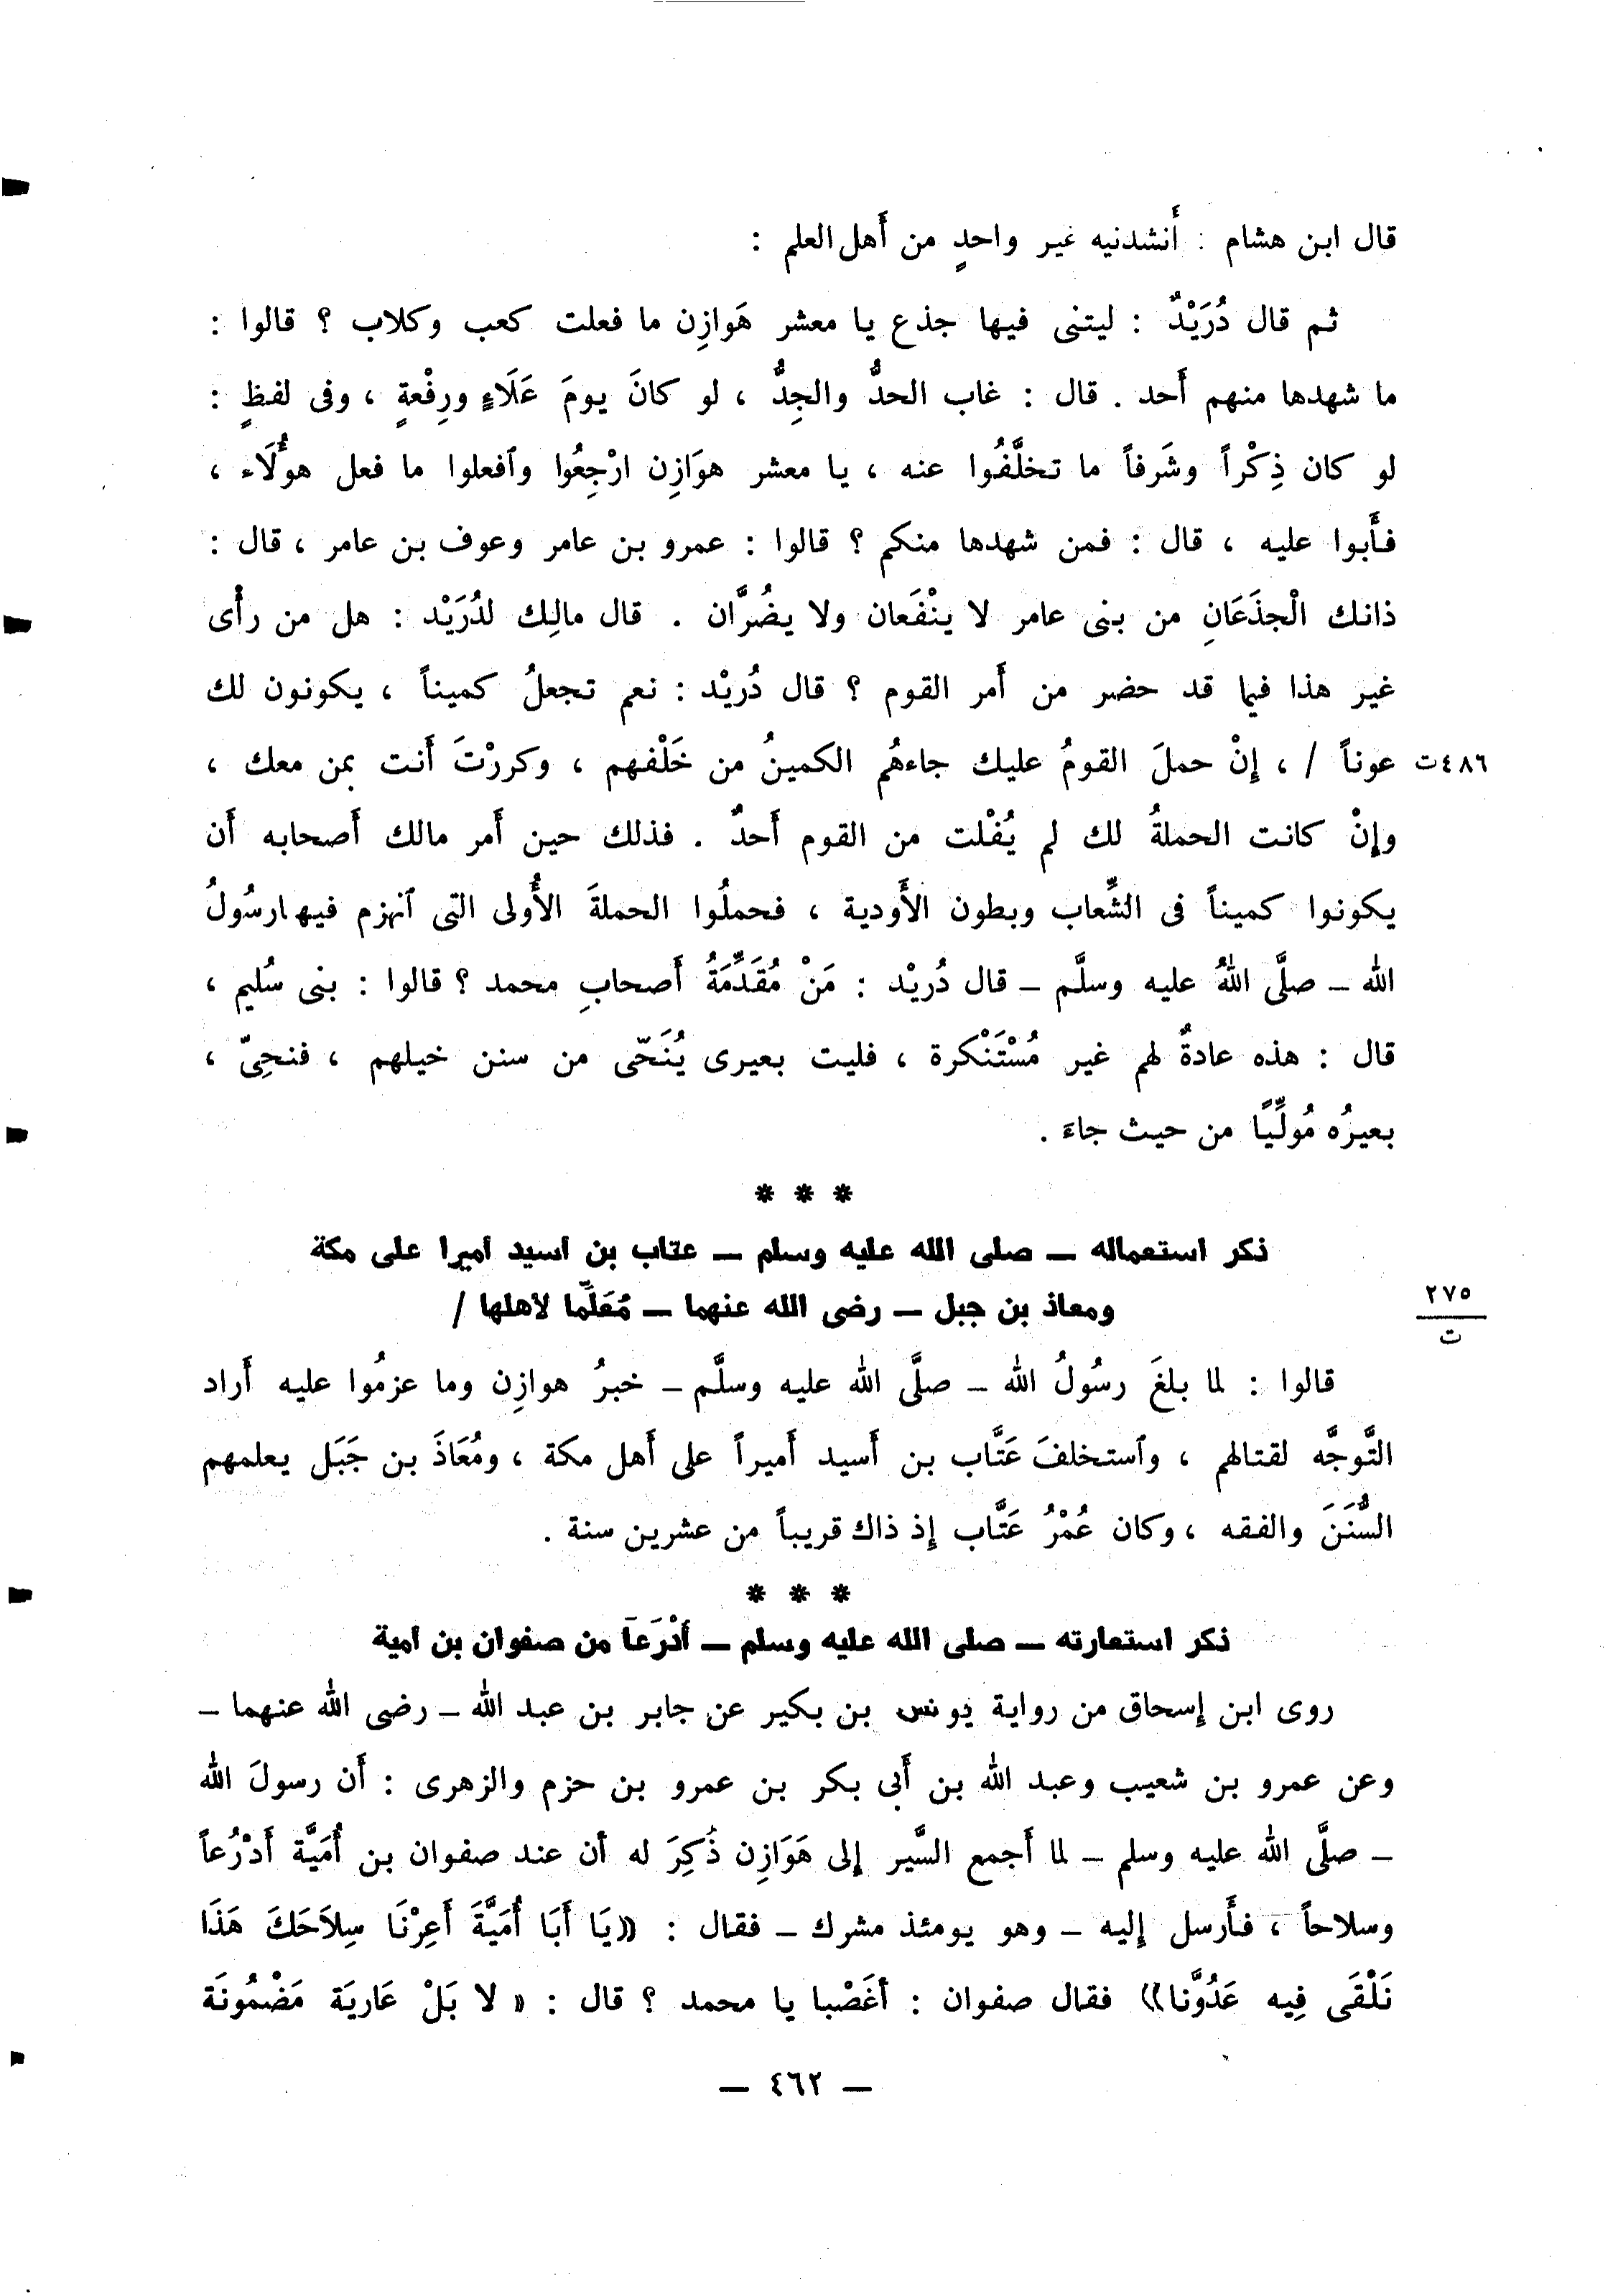 قال ابن هشام : أَنشدنيه غير واحدٍ من أَهل العلم :
ثم قال دُرَيْدٌ : ليتنى فيها جذع يا معشر هَوازِن ما فعلت كعب وكلاب ؟ قالوا :
ما شهدها منهم أَحد . قال : غاب الحدُّ والجِدُّ ، لو كانَ يومَ عَلَاءٍ ورِفْعةٍ ، وفى لفظٍ :
لو كان ذِكْراً وشَرفاً ما تخلَّفُوا عنه ، يا معشر هوَازِن ارْجِعُوا وٱفعلوا ما فعل هؤُلَاء ،
فأَبوا عليه ، قال : فمن شهدها منكم ؟ قالوا : عمرو بن عامر وعوف بن عامر ، قال :
ذانك الْجذَعَانِ من بنى عامر لا ينْفَعان ولا يضُرَّان . قال مالِك لدُرَيْد : هل من رأْى
غير هذا فيما قد حضر من أَمر القوم ؟ قال دُريْد : نعم تجعلُ كميناً ، يكونون لك
عوناً / ، إِنْ حملَ القومُ عليك جاءهُم الكمينُ من خَلْفهم ، وكررْتَ أَنت بمن معك ، ٤٨٦ت
وإِنْ كانت الحملةُ لك لم يُفْلت من القوم أَحدٌ . فذلك حين أَمر مالك أَصحابه أَن
يكونوا كميناً فى الشِّعاب وبطون الأَودية ، فحملُوا الحملةَ الأُولى التى ٱنهزم فيها رسُولُ
الله - صلَّى اللهُ عليه وسلَّم - قال دُريْد : مَنْ مُقَدِّمَةُ أَصحابِ محمد ؟ قالوا : بنى سُليم ،
قال : هذه عادةٌ لهم غير مُسْتَنْكرة ، فليت بعيرى يُنَحّى من سنن خيلهم ، فنحِىّ ،
بعيرُه مُولِّيًا من حيث جاءَ .
* * *
ذكر استعماله - صلى الله عليه وسلم - عتاب بن اسيد اميرا على مكة
ومعاذ بن جبل - رضى الله عنهما - مُعَلِّما لاهلها /
٢٧٥
ت
قالوا : لما بلغَ رسُولُ الله - صلَّى الله عليه وسلَّم - خبرُ هوازِن وما عزمُوا عليه أَراد
التَّوجَّه لقتالهم ، وٱستخلفَ عَتَّاب بن أَسيد أَميراً على أَهل مكة ، ومُعَاذَ بن جَبَل يعلمهم
السُّنَنَ والفقه ، وكان عُمْرُ عَتَّاب إِذ ذاك قريباً من عشرين سنة .
* * *
ذكر استعارته - صلى الله عليه وسلم - أدْرَعاً من صفوان بن أمية
روى ابن إسحاق من رواية يونس بن بكير عن جابر بن عبد الله - رضى الله عنهما -
وعن عمرو بن شعيب وعبد الله بن أَبى بكر بن عمرو بن حزم والزهرى : أَن رسولَ الله
- صلَّى الله عليه وسلم - لما أَجمع السَّير إلى هَوَازِن ذُكِرَ له أن عند صفوان بن أُمَيَّة أَدْرُعاً
وسلاحاً ، فأَرسل إليه - وهو يومئذ مشرك - فقال : «يَا أَبَا أُمَيَّةَ أَعِرْنَا سِلاَحَكَ هَذَا
نَلْقَى فِيه عَدُوَّنا» فقال صفوان : أغَصْبا يا محمد ؟ قال : « لا بَلْ عَاريَة مَضْمُونَة
— ٤٦٢ —